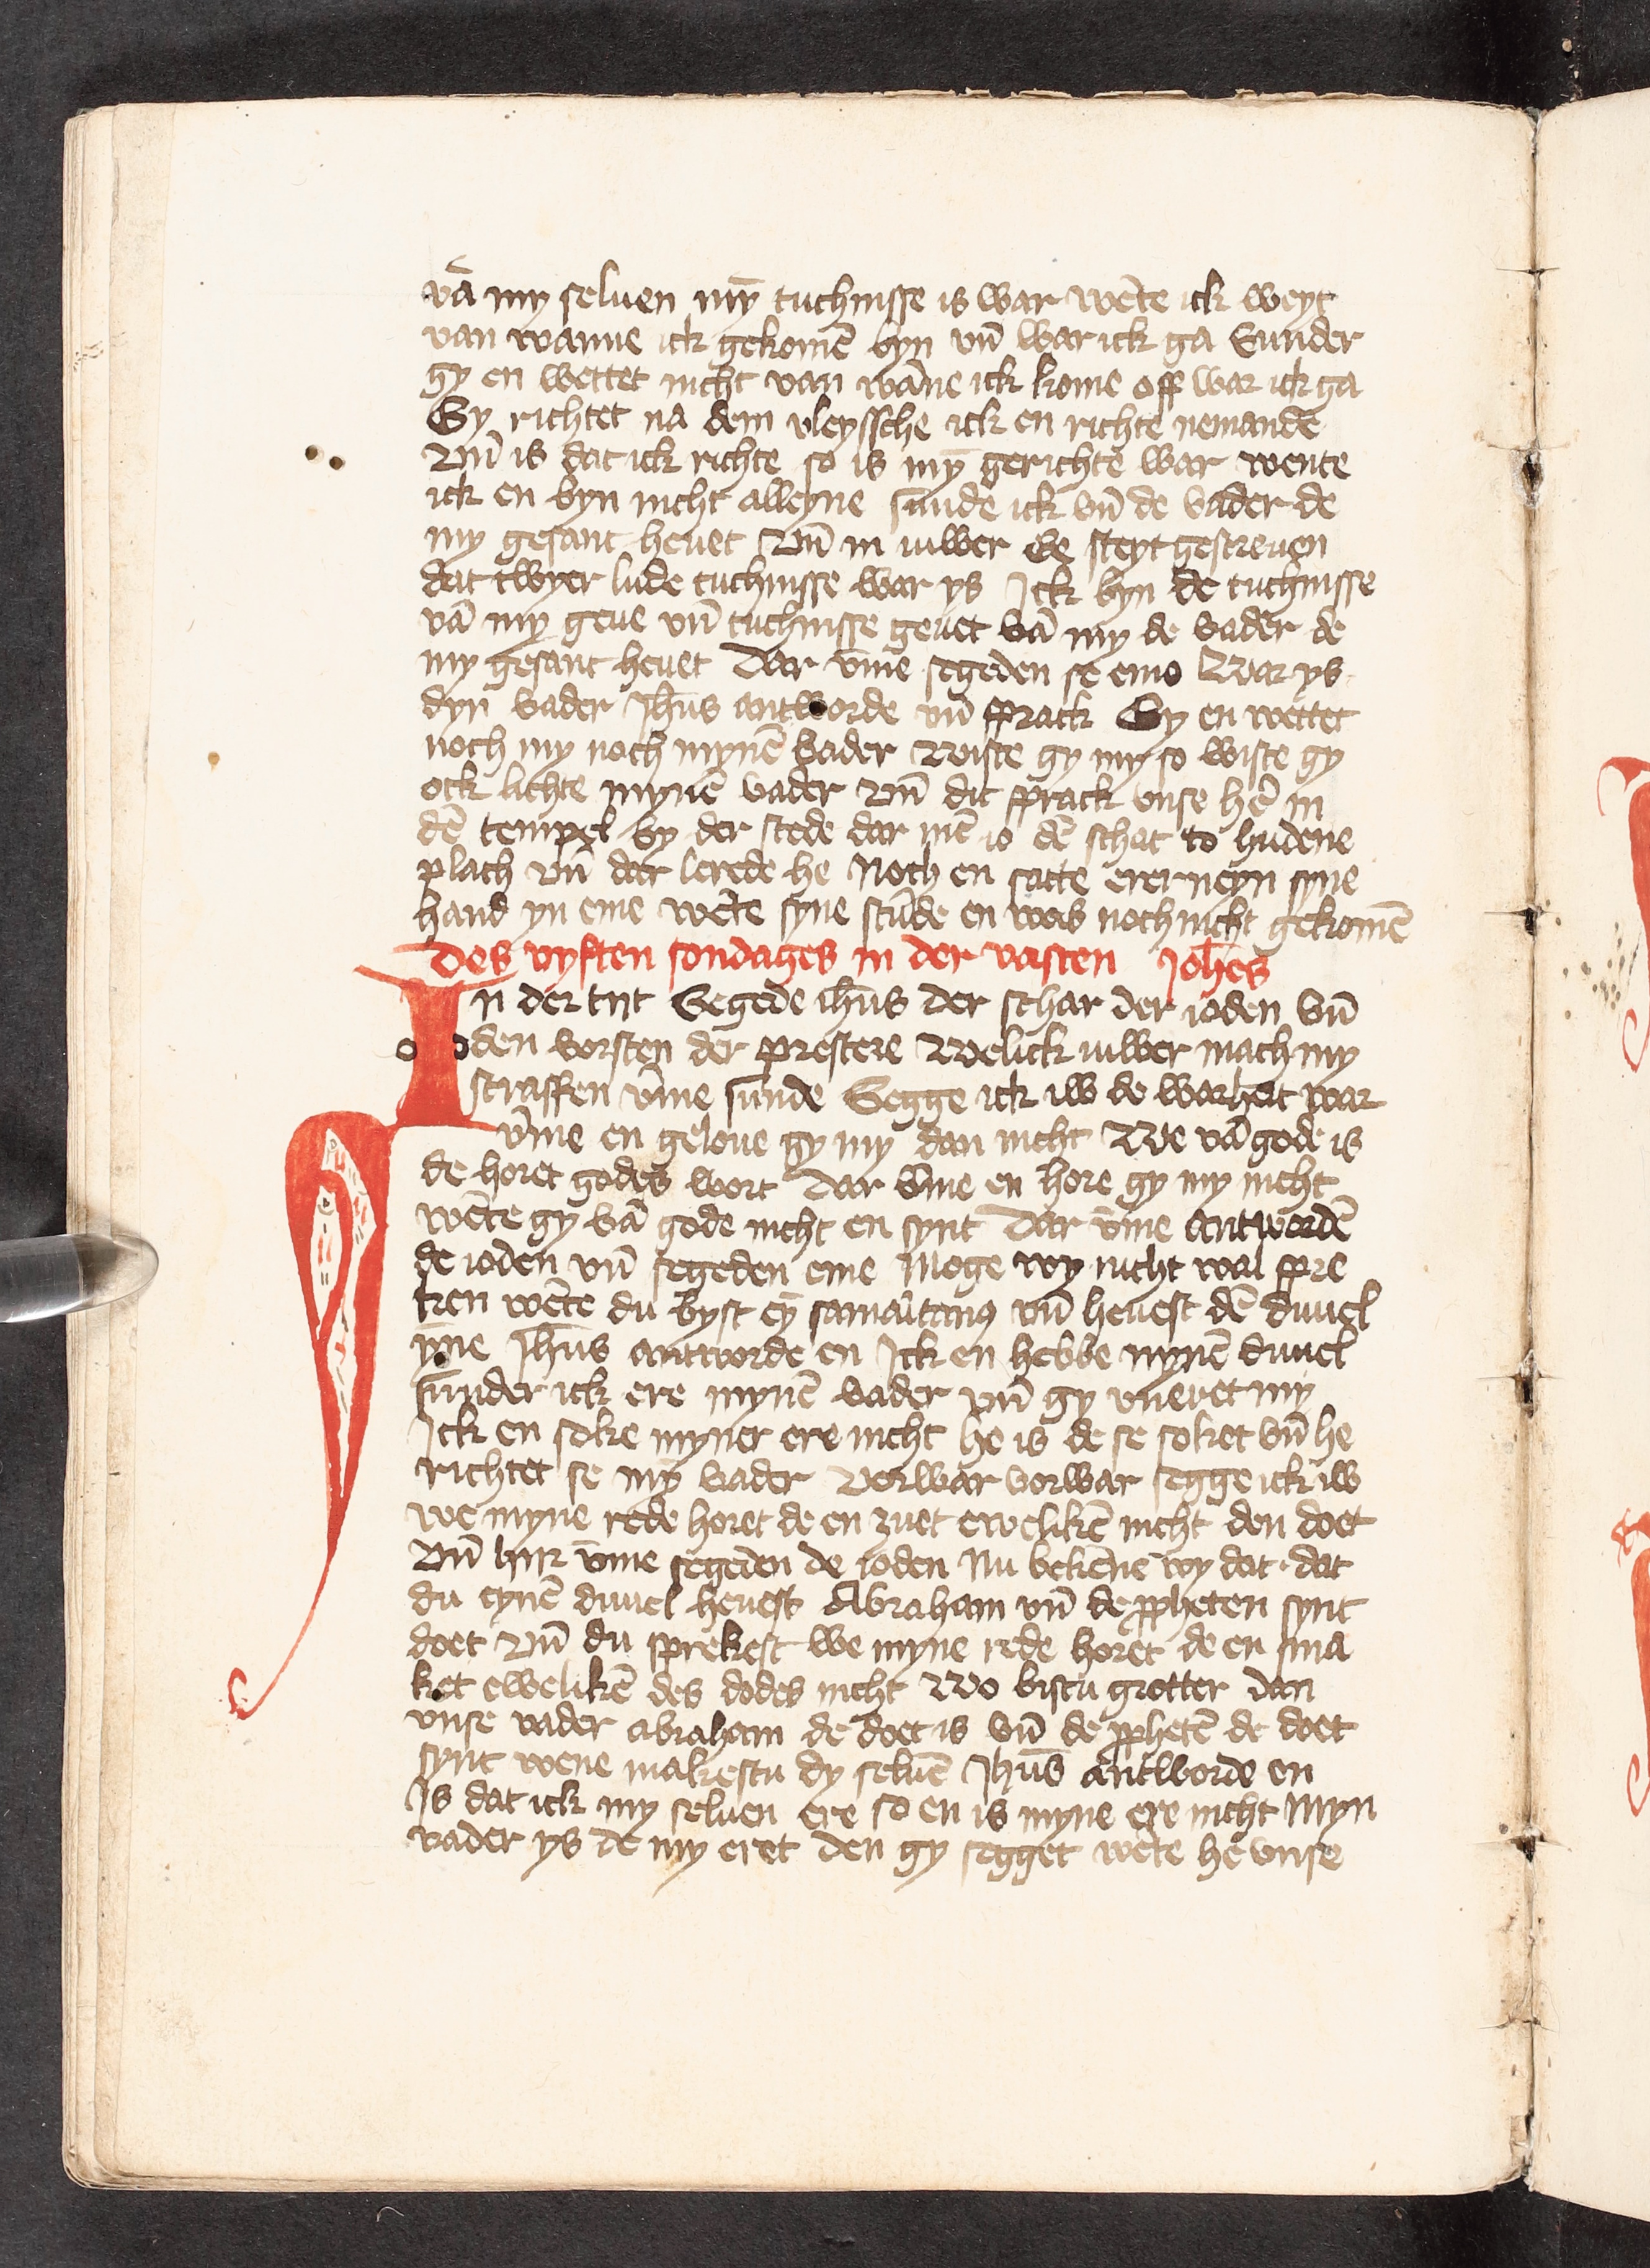 vā my seluen mȳ tuchnisse is war wēte ick weyt
van wanne ick gekomē byn vn̄ war ick ga Sunder
gy en wettet nicht van wāne ick kome off war ick ga
Gy richtet na dem vleyssche ick en richte nemande
Vn̄ is dat ick richte so is mȳ gerichte war wente
ick en byn nicht alleyne sunde ick vn̄ de vader de
my gesant heuet Vn̄ in iuwer Ee steyt gestreuen
dat twyer lude tuchnisse war ys Ick byn de tuchnisse
vā my geue vn̄ tuchnisse geuet vā my de vader de
my gesant heuet Dar vm̄e segeden se eme War ys
dyn vader Jhūs antworde vn̄ sprack Gy en wettet
noch my noch mynē vader Wiste gy my so wiste gy
ock lichte mynē vader Vn̄ dit sprack vnse hē in
dē tempel by der stede dar mē io dē schat to hudene
plach vn̄ dar lerede he Noch en satte erer neyn syne
hand yn eme wēte syne stūde en was noch nicht gekomē
Des vyften sondages in der vasten Johēs
In der tijt Segede ihūs der schar der ioden vn̄
den vorsten der prestere Welick iuwer mach my
straffen vm̄e sunde Segge ick iw de warheit war
vm̄e en geloue gy my dan nicht We vā gode is
de horet godes wort Dar vm̄e en hore gy my nicht
wēte gy vā gode nicht en synt Dar vm̄e antwordē
de ioden vn̄ segeden eme Moge wy nicht wal spre
ken wēte du byst eȳ samaritanus vn̄ heuest dē duuel
ȳne Jhūs antworde en Ick en hebbe nynē duuel
sunder ick ere mynē vader vn̄ gy vneret my
Ick en soke myner ere nicht he is de se soket vn̄ he
richtet se mȳ vader Vorwar vorwar segge ick iw
we myne rede horet de en zuet ewelikē nicht den doet
Vn̄ hijr vm̄e segeden de ioden Nu bekēne wy dat dat
du eynē duuel heuest Abraham vn̄ de ppheten synt
doet Vn̄ du sprekest we myne rede horet de en sma
ket ewelikē des dodes nicht Wo bistu grotter dan
vnse vader abraham de doet is vn̄ de pphetē de doet
synt wene makestu dy seluē Jhūs antworde en
Is dat ick my seluen ere so en is myne ere nicht Myn
vader ys de my eret den gy segget wēte he vnse